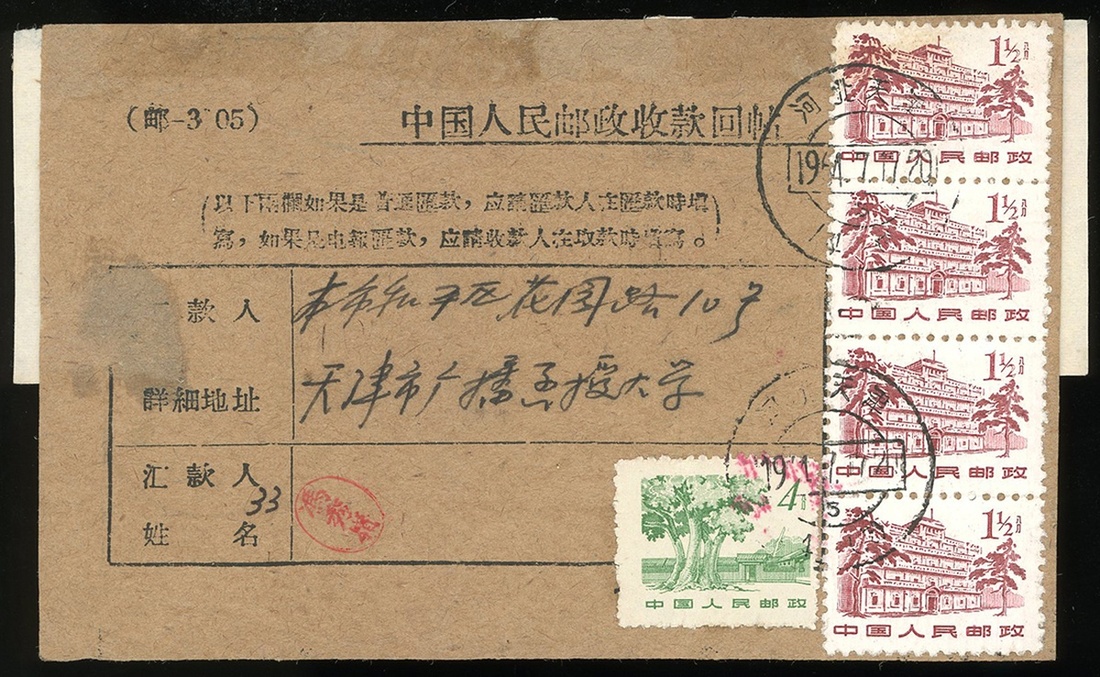 (邮-3 05)
中国人民邮政收款回帖
(以下兩欄如果是普通匯款，应請匯款人在匯款時填
寫，如果是电報匯款，应請收款人在取款時填寫。)
款人
本市和平区花园路10号
詳細地址
天津市广播函授大学
汇款人
33
姓名
1½分
中国人民邮政
1½分
中国人民邮政
1½分
中国人民邮政
1½分
中国人民邮政
4分
中国人民邮政
河北天
7.17.20